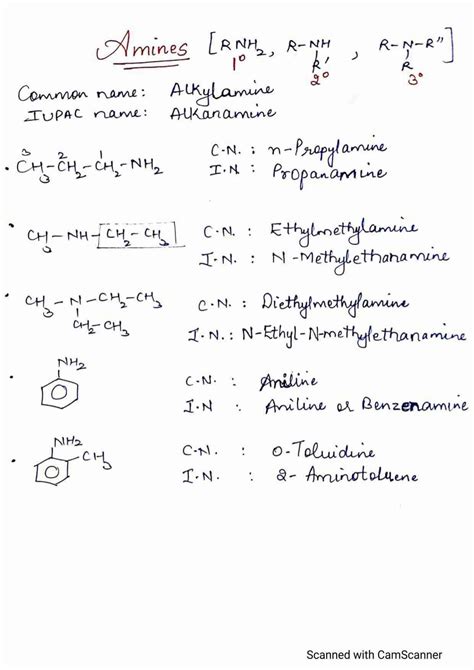 Amines [RNH2, R-NH, R-N-R"]
R' R
1° 2° 3°
Common name: Alkylamine
IUPAC name: Alkanamine
3 2 1
CH3-CH2-CH2-NH2 C.N. : n-Propylamine
I.N : Propanamine
CH3-NH-CH2-CH3 C.N. : Ethylmethylamine
I.N. : N-Methylethanamine
CH3-N-CH2-CH3 C.N. : Diethylmethylamine
CH2-CH3 I.N. : N-Ethyl-N-methylethanamine
NH2
C.N. : Aniline
I.N : Aniline or Benzenamine
NH2
CH3 C.N. : o-Toluidine
I.N. : 2-Aminotoluene
Scanned with CamScanner